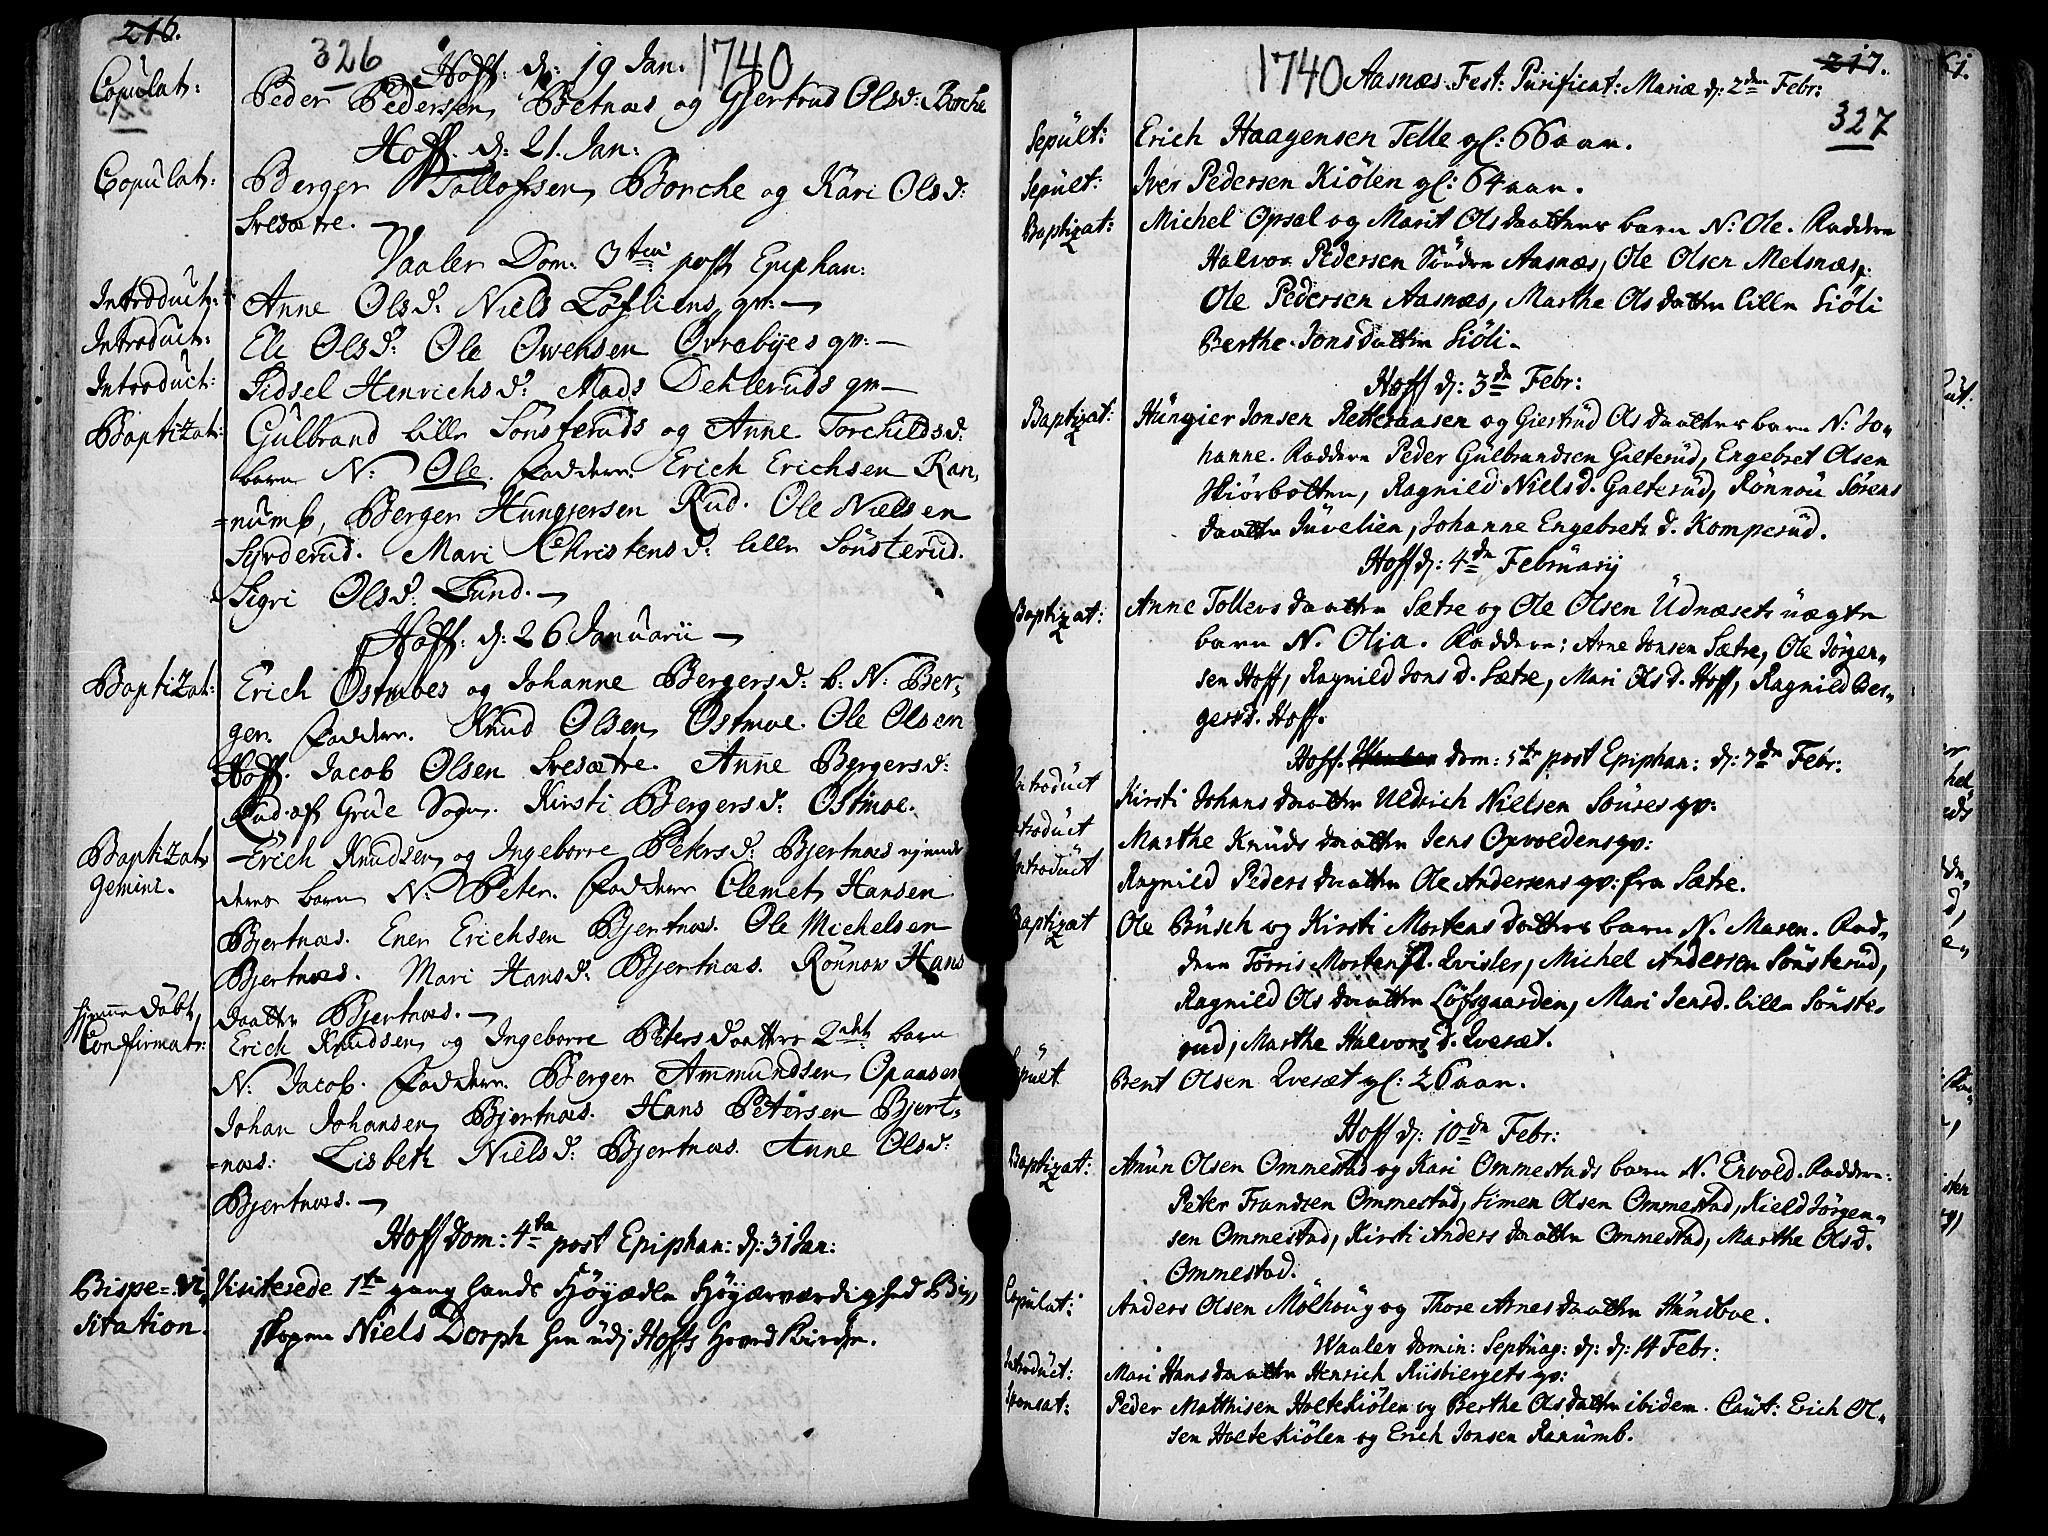 216.
326
Hoff. d: 19 Jan. 1740
Copulat: Peder Pedersen Bietnæs og Gjertrud Olsd: Borche
Hoff. d: 21. Jan:
Copulat: Berger Tollofsen Borche og Kari Olsd:
Svesætre. —
Vaaler Dom: 3tia post Epiphan:
Introduct: Anne Olsd: Niels Løfliens qv: —
Introduct: Eli Olsd: Ole Owensen Øvrebyes qv: —
Introduct: Sidsel Henrichsd: Mads Dehleruds qv —
Baptizat: Gulbrand lille Sønsteruds og Anne Torchildsd:
barn N: Ole. Faddere Erich Erichsen Ran,
=numb, Berger Hungjersen Rud. Ole Nielsen
Syrderud. Mari Christensd: lille Sønsterud.
Sigri Olsd: Lund. —
Hoff: d: 26 Januarii —
Baptizat: Erich Ostmoes og Johanne Bergersd: b: N: Ber,
ger. Faddere. Knud Olsen Ostmoe. Ole Olsen
Hoff. Jacob Olsen Svesætre. Anne Bergersd:
Rud af Grue Sogn. Kirsti Bergersd: Ostmoe.
Baptizat Erich Knudsen og Ingeborre Petersd: Bjertnæs
Gemini. barn N: Peter. Faddere Clemet Hansen
Bjertnæs. Ener Erichsen Bjertnæs. Ole Michelsen
Bjertnæs. Mari Hansd: Bjertnæs. Rönnow Hans
daatter Bjertnæs. —
hjemme døbt,
Confirmat: Erich Knudsen og Ingeborre Petersdaatters 2det barn
N: Jacob. Faddere. Berger Ammundsen Opaaser
Johan Johansen Bjertnæs. Hans Petersen Bjert=
=næs: Lisbeth Nielsd: Bjertnæs. Anne Olsd:
Bjertnæs. —
Hoff Dom: 4ta post Epiphan: d: 31 Jan:
Bispe=Vi, Visiterede 1te gang hands Høyædle Høyærværdighed Bi,,
sitation. skopen Niels Dorph her udj Hoffs HovedKirche.
1740 Aasnæs. Fest: Purificat: Mariæ d: 2den Febr: 217.
327
Sepult: Erich Haagensen Telle gl: 66 aar.
Sepult: Iver Pedersen Kiölen gl: 64 aar.
Baptizat: Michel Opsal og Marit Olsdaatters barn N: Ole. Faddere
Halvor Pedersen Söndre Aasnæs, Ole Olsen Melsnæs,
Ole Pedersen Aasnæs, Marthe Olsdatter lille Siöli
Berthe Jonsdatter Siöli.
Hoff d: 3de Febr:
Baptizat: Hüngier Jonsen Retteraasen og Giertrüd Olsdaatters barn N: Jo,
hanne. Faddere Peder Gülbrandsen Galterüd, Engebret Olsen
Skiörbotten, Ragnild Nielsd. Galterüd, Rönnoü Sörens
daatter Jüvelien, Johanne Engebrets d. Komperüd.
Hoff d: 4de Februarij
Baptizat: Anne Tollevsdaatter Sætre og Ole Olsen Üdnæsets üægte
barn N. Olia. Faddere: Arne Jonsen Sætre, Ole Jörgen,,
sen Hoff, Ragnild Jons d. Sætre, Mari Ols d. Hoff, Ragnild Ber,,
gersd. Hoff.
Hoff. Dom: 5te post Epiphan: d: 7de Febr:
Introdüct Kirsti Johansdaatter Uldrich Nielsen Sönses qv:
Introdüct Marthe Knüdsdaatter Jens Opvoldens qv:
Introdüct Ragnild Pedersdaatter Ole Andersens qv: fra Sætre.
Baptizat Ole Büsch og Kirsti Mortensdatters barn N. Maren. Fad,,
dere Törris Mortens. Qvisler, Michel Andersen Sönsterüd,
Ragnild Olsdaatter Löfsgaarden, Mari Jensd. lille Sönste,
rüd, Marthe Halvors d. Qvesæt.
Sepült Bent Olsen Qvesæt gl: 26 aar.
Hoff d: 10de Febr:
Baptizat: Amün Olsen Ommestad og Kari Ommestads barn N. Envold. Faddere:
Peter Frandsen Ommestad, Simen Olsen Ommestad, Kield Jörgen,,
sen Ommestad, Kirsti Andersdaatter Ommestad, Marthe Ols d.
Ommestad.
Copülat: Anders Olsen Mölhoüg og Thore Arnesdaatter Hündboe.
Waaler Domin: Septuag: d: d: 14 Febr:
Introdüct: Mari Hansdaatter Henrich Riisbiergets qv:
Sponsat: Peder Matthisen Holtekiölen og Berthe Olsdatter ibidem. Caüt: Erich Ol,,
sen Holtekiölen og Erich Jonsen Ranümb.